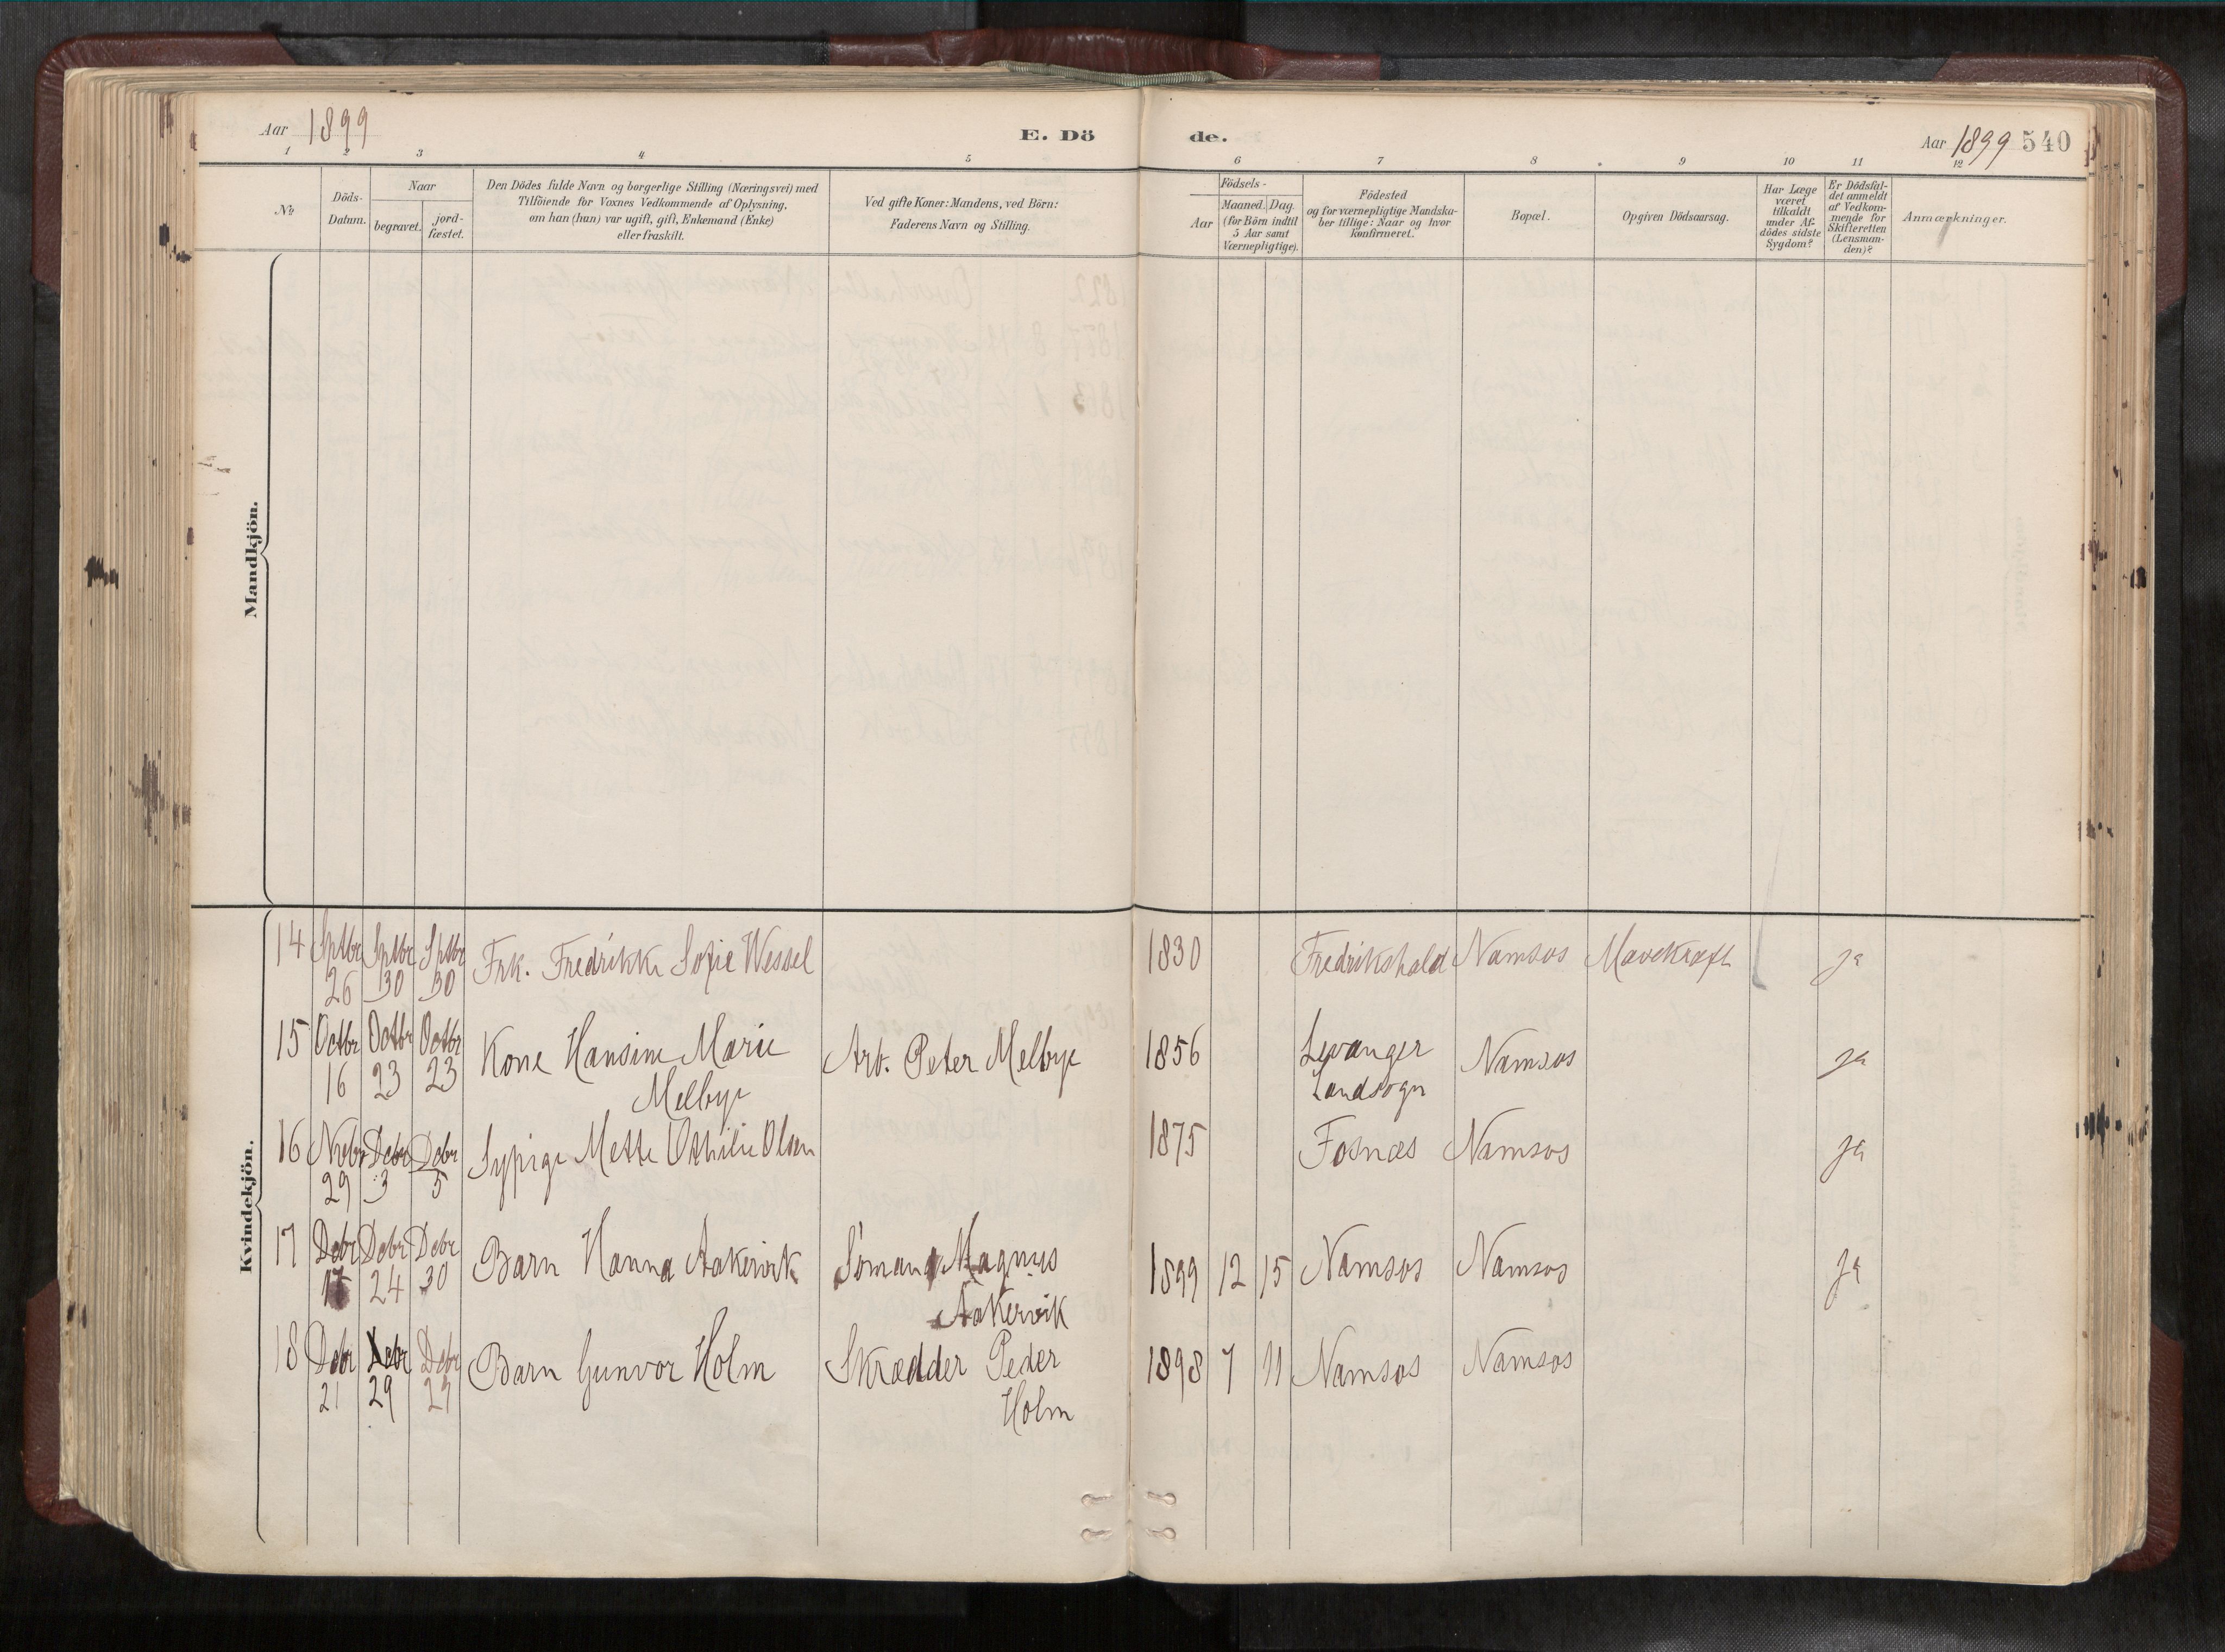 Aar 1899
E. Dö
de.
Aar 1899 540
1 2 3 4 5 6 7 8 9 10 11 12
No
Döds-
Datum.
Naar
begravet.
jord-
fæstet.
Den Dödes fulde Navn og borgerlige Stilling (Næringsvei) med
Tilföiende for Voxnes Vedkommende af Oplysning,
om han (hun) var ugift, gift, Enkemand (Enke)
eller fraskilt.
Ved gifte Koner: Mandens, ved Börn:
Faderens Navn og Stilling.
Födsels-
Aar
Maaned. Dag.
(for Börn indtil
5 Aar samt
Værnepligtige).
Födested
og for værnepligtige Mandska-
ber tillige: Naar og hvor
konfirmeret.
Bopæl.
Opgiven Dödsaarsag.
Har Læge
været
tilkaldt
under Af-
dödes sidste
Sygdom?
Er Dödsfal-
det anmeldt
af Vedkom-
mende for
Skifteretten
(Lensman-
den)?
Anmærkninger.
Mandkjön.
Kvindekjön.
14 Sptbr Sptbr Sptbr Frk. Fredrikke Sofie Wessel 1830 Fredrikshald Namsos Mavekræft ja
26 30 30
15 Octbr Octbr Octbr Kone Hansine Marie Arb. Peter Melbye 1856 Levanger Namsos ja
16 23 23 Melbye Landsogn
16 Nvbr Debr Debr Sypige Mette Othilie Olsen 1875 Fosnæs Namsos ja
29 3 5
17 Debr Debr Debr Barn Hanna Aakervik Sömand Magnus 1899 12 15 Namsos Namsos ja
24 30 Aakervik
18 Debr Debr Debr Barn Gunvor Holm Skrædder Peder 1898 7 11 Namsos Namsos
21 29 29 Holm